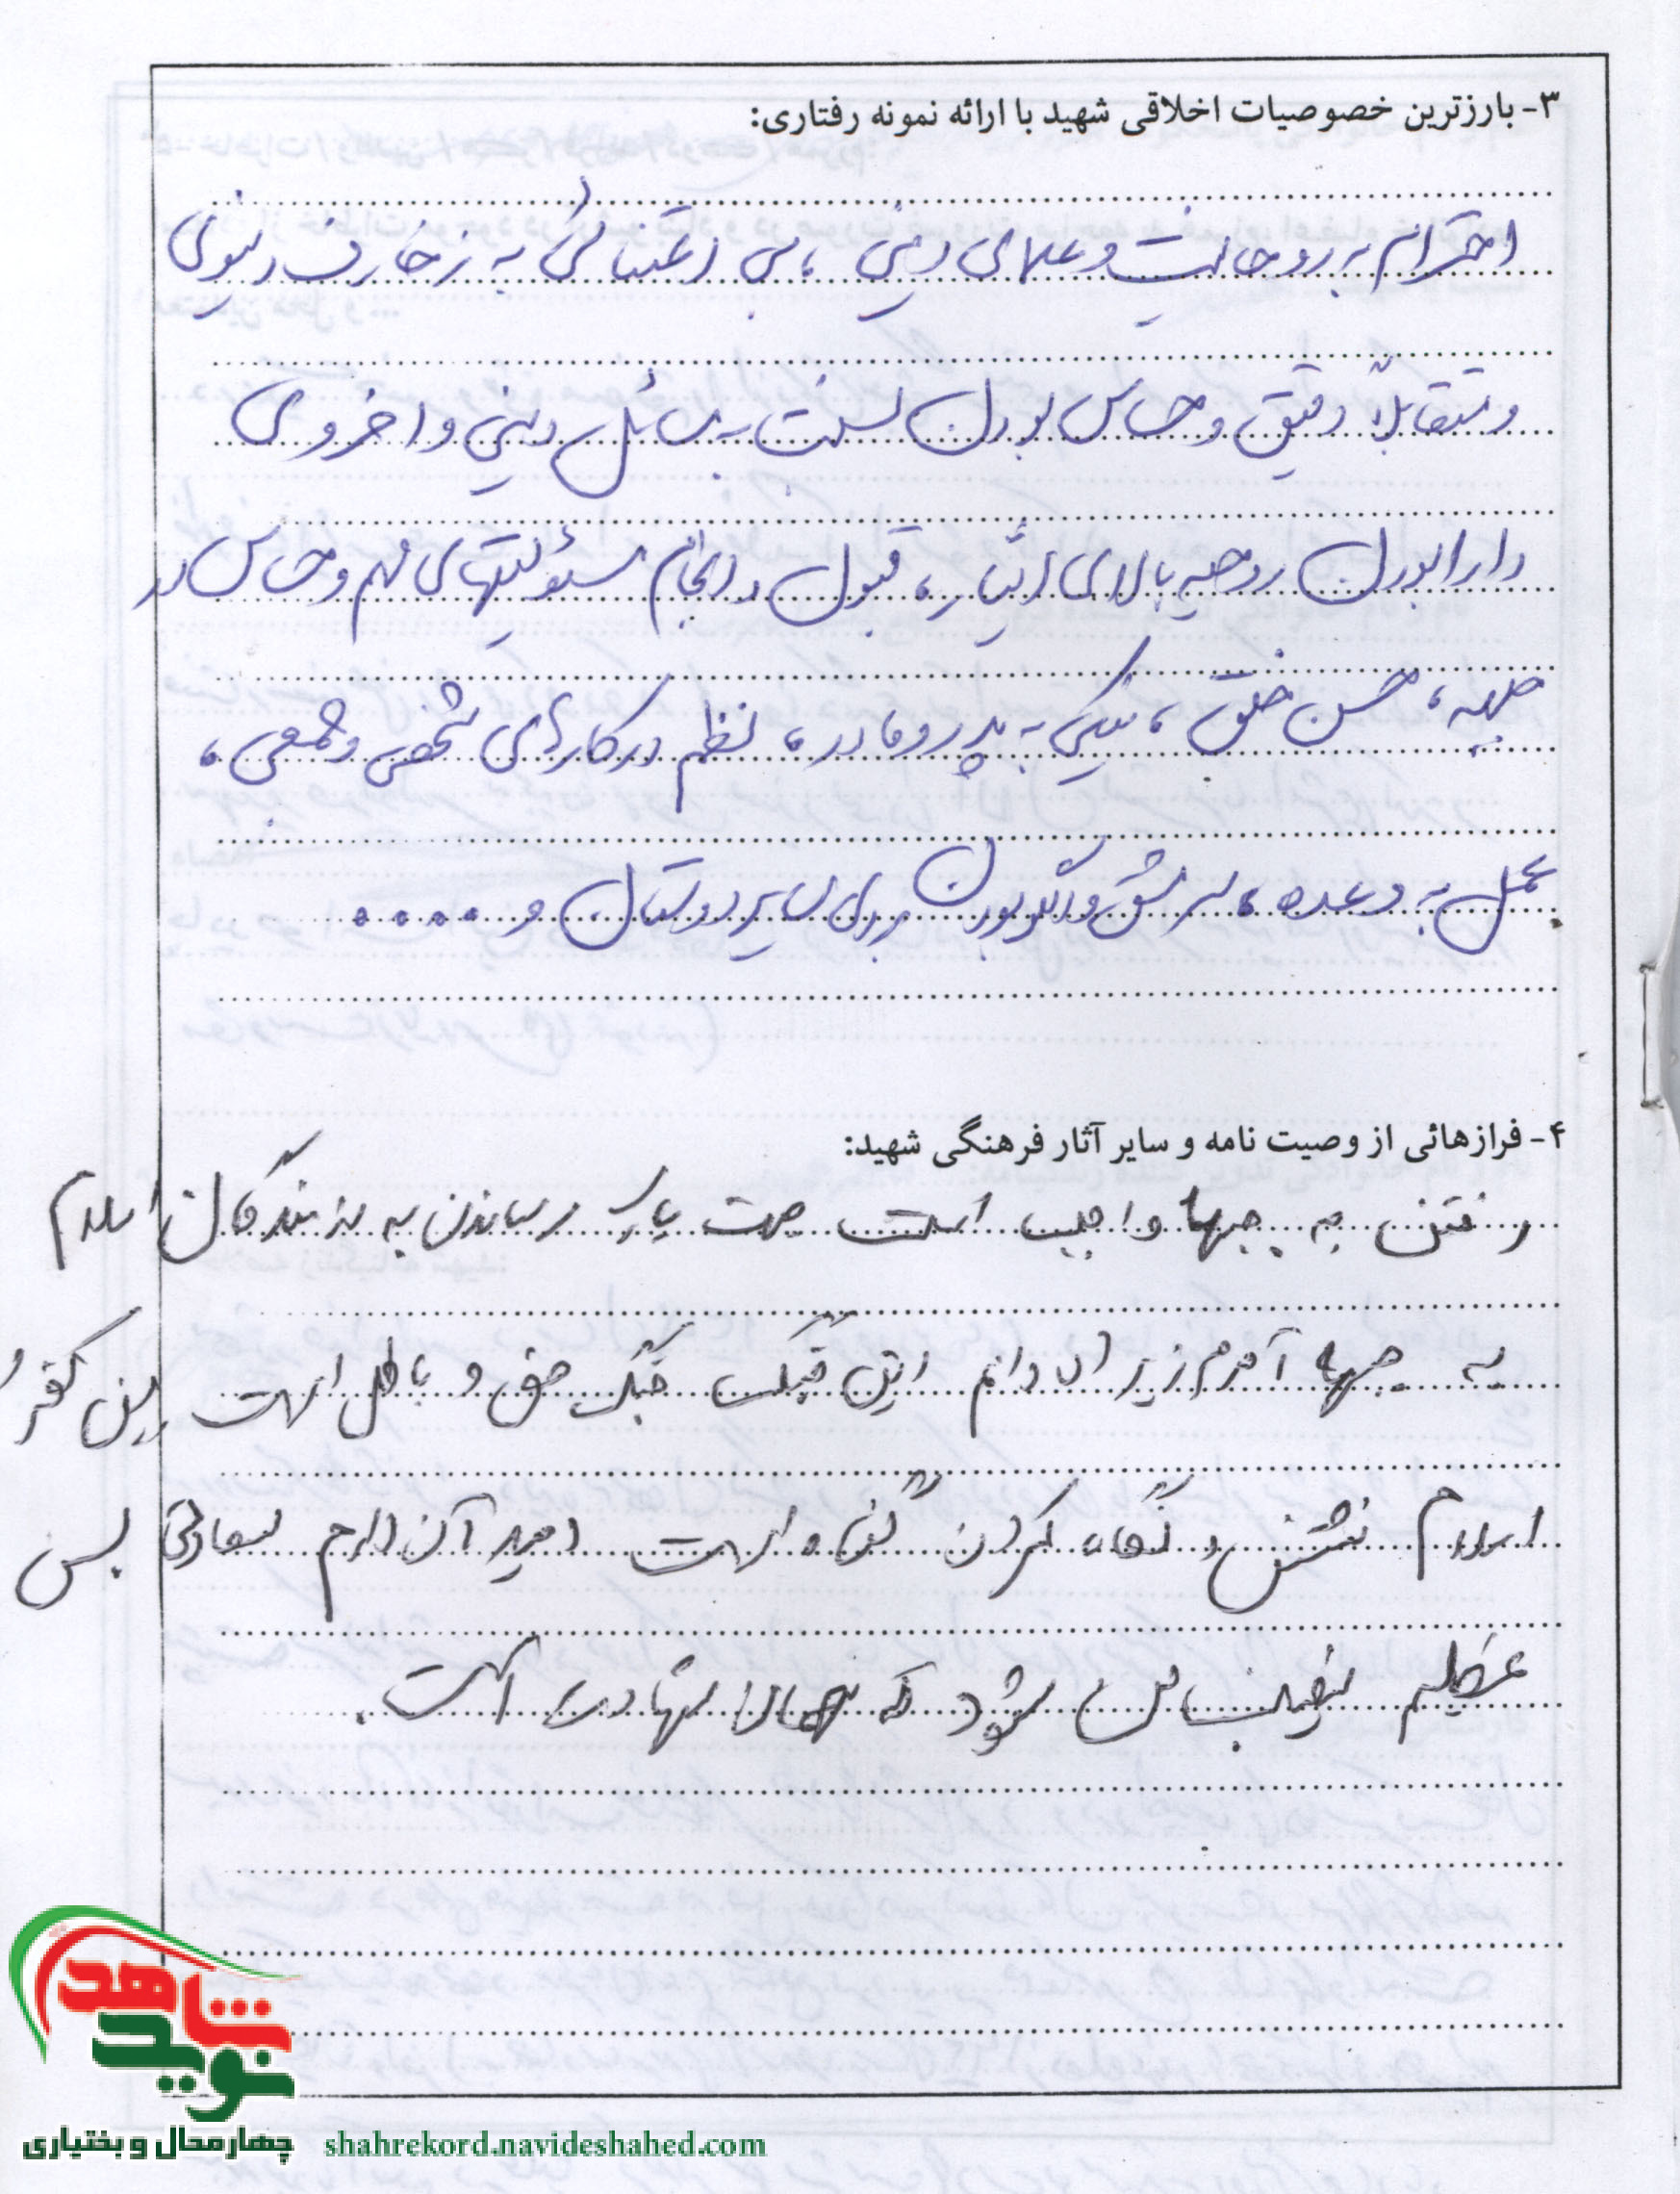 ۳- بارزترین خصوصیات اخلاقی شهید با ارائه نمونه رفتاری:
احترام به روحانیت و علمای دینی ، بی اعتنائی به زخارف دنیوی
و متقابلاً دقیق و حساس بودن نسبت به مسائل دینی و اخروی
دارا بودن روحیه بالای ایثار ، قبول و انجام مسئولیتهای مهم و حساس در
جبهه ، حسن خلق ، نیکی به پدر و مادر ، نظم در کارهای شخصی و جمعی ،
عمل به وعده ، سرمشق و الگو بودن برای سایر دوستان و ....
۴- فرازهائی از وصیت نامه و سایر آثار فرهنگی شهید:
رفتن به جبهه‌ها واجب است جهت یاری رساندن به رزمندگان اسلام
به جبهه آمدم زیرا دانم این جنگ حق و باطل است بین کفر و
اسلام نشستن و نگاه کردن گناه است امید آن دارم سعادتی بس
عظیم نصیب من شود که همان شهادت است.
شاهد
نوید
چهارمحال و بختیاری
shahrekord.navideshahed.com